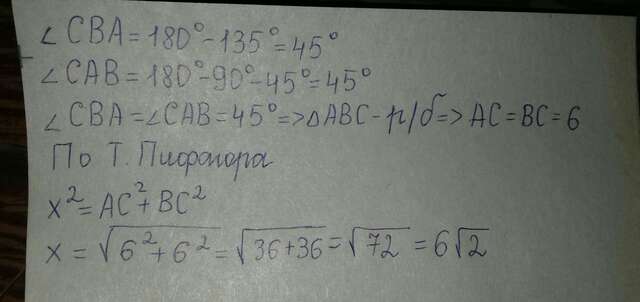 ∠CBA=180°-135°=45°
∠CAB=180°-90°-45°=45°
∠CBA=∠CAB=45°=>△ABC-р/б=>AC=BC=6
По Т. Пифагора
x²=AC²+BC²
x=√6²+6²=√36+36=√72=6√2